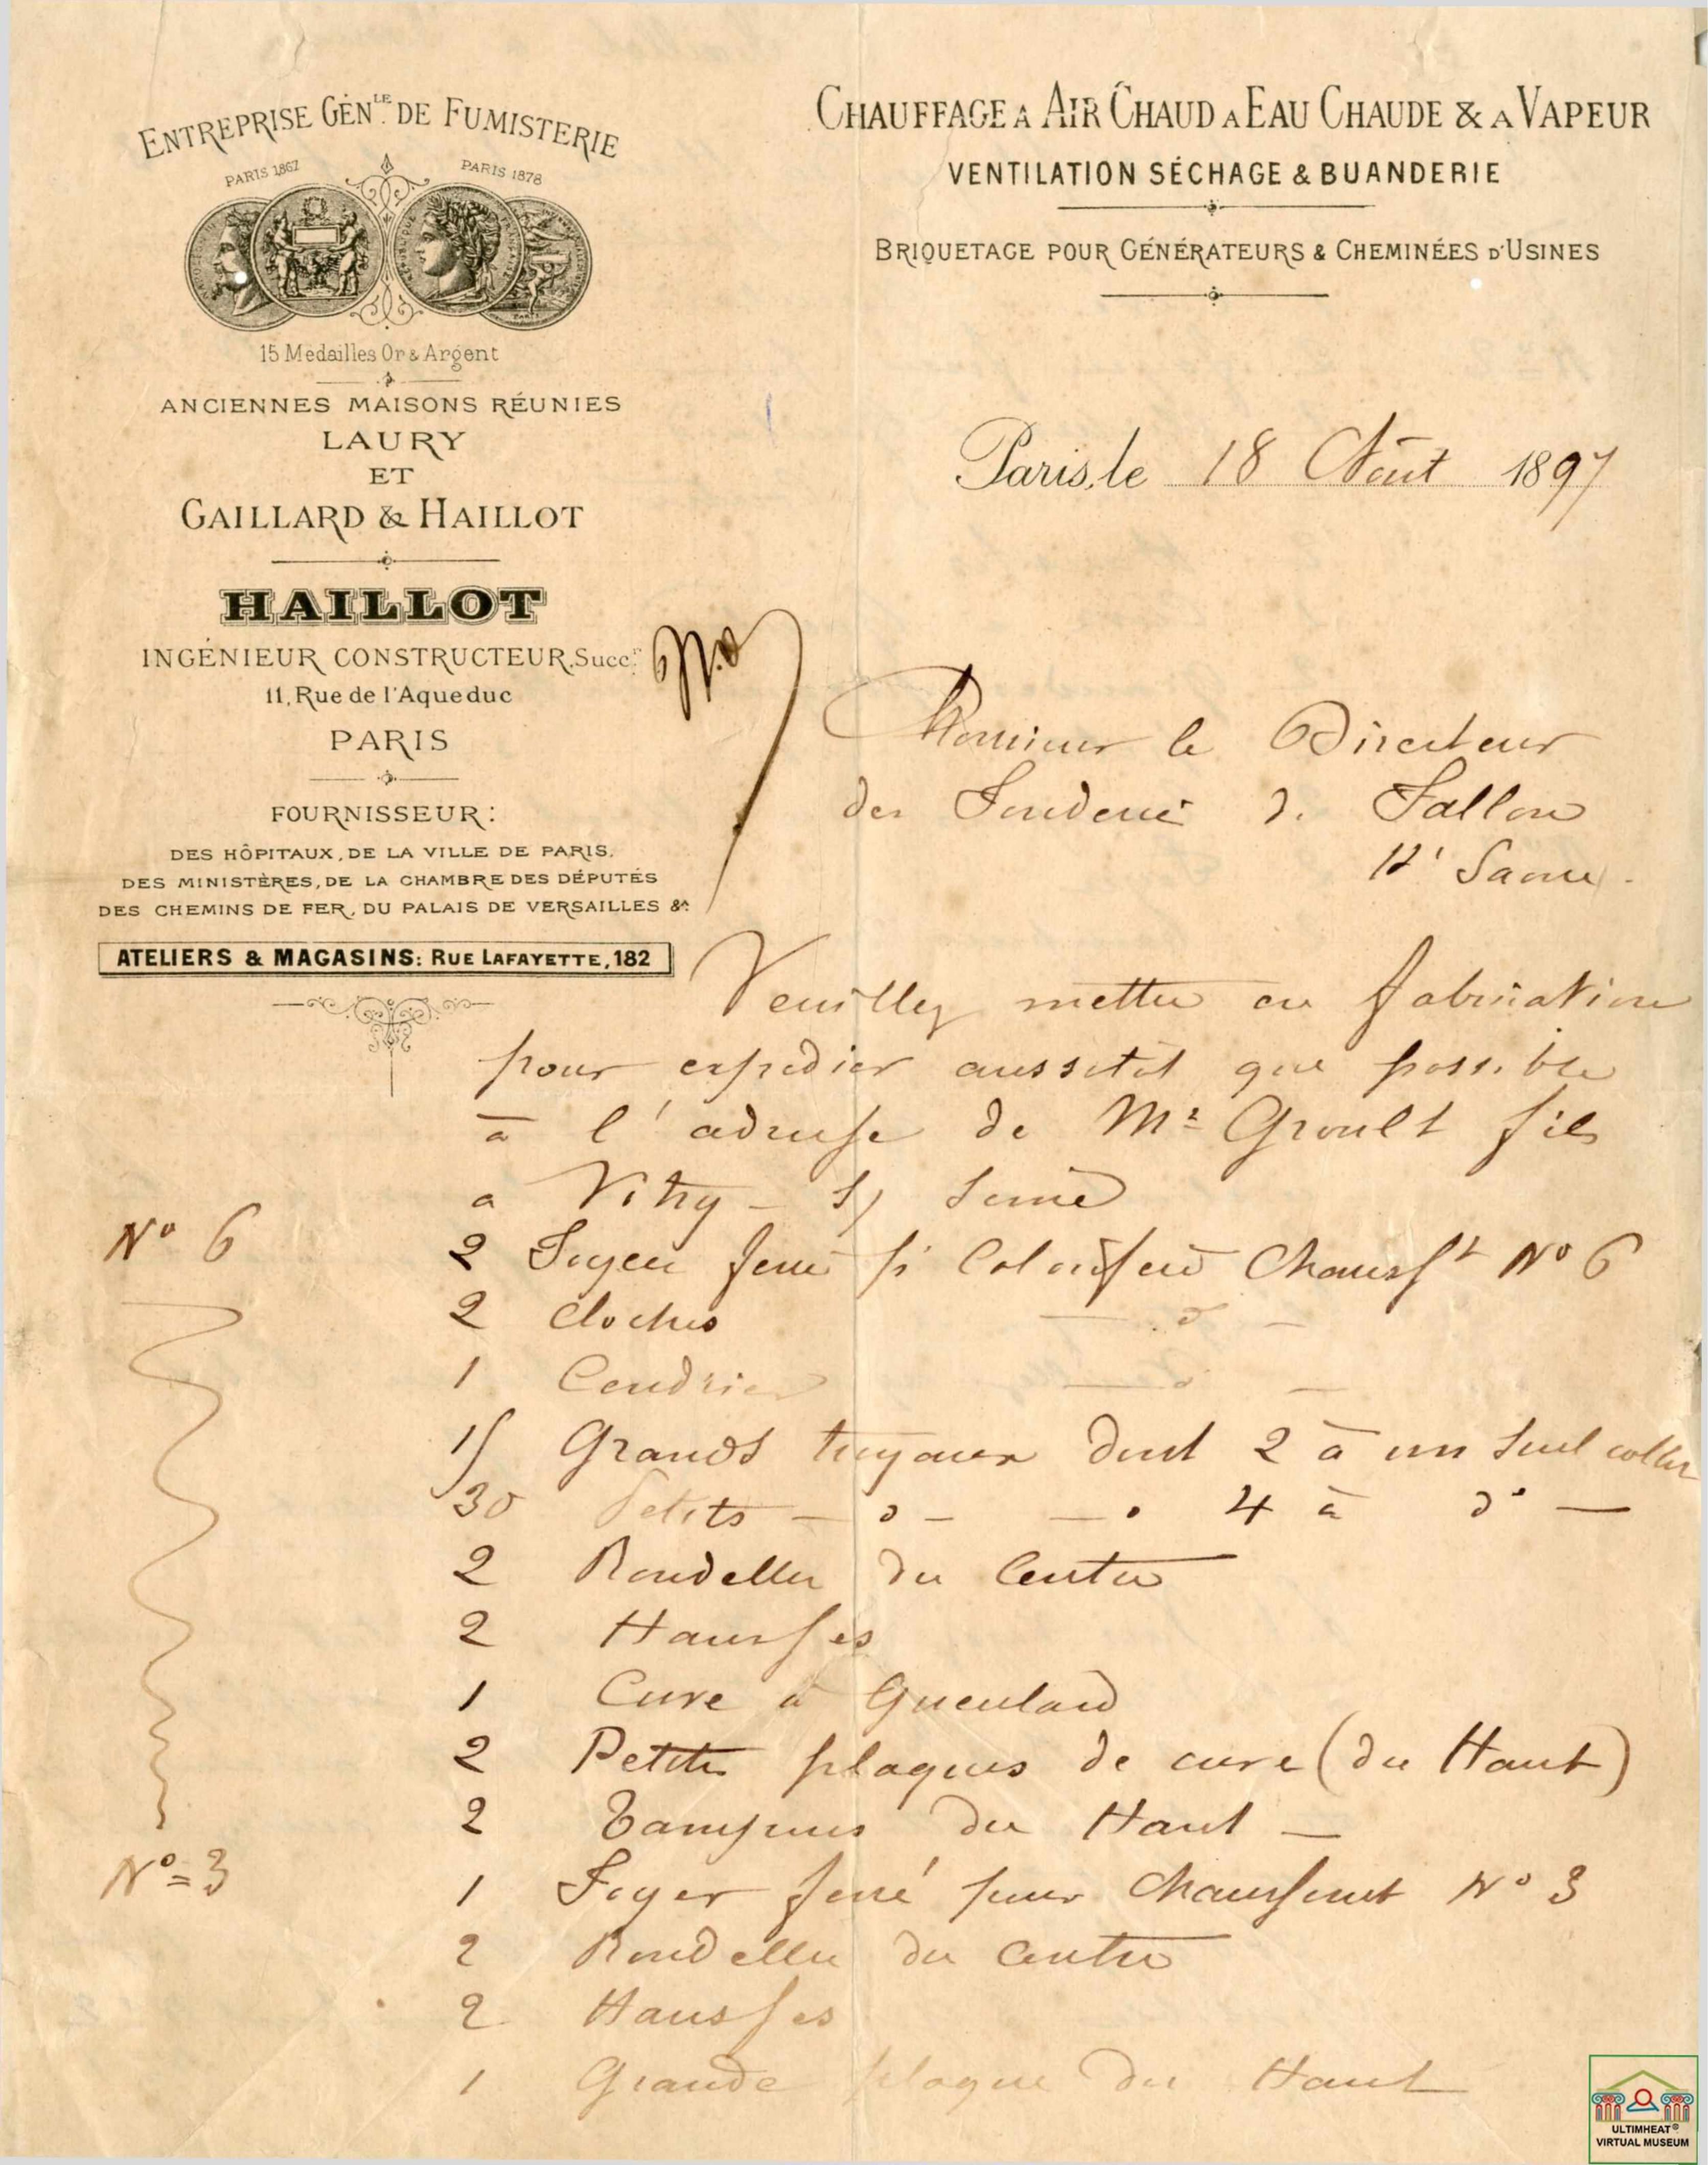 ENTREPRISE GÉN.LE DE FUMISTERIE
PARIS 1867
PARIS 1878
15 Médailles Or & Argent
ANCIENNES MAISONS RÉUNIES
LAURY
ET
GAILLARD & HAILLOT
HAILLOT
INGÉNIEUR CONSTRUCTEUR, Succ.r
11, Rue de l'Aqueduc
PARIS
FOURNISSEUR:
DES HÔPITAUX, DE LA VILLE DE PARIS,
DES MINISTÈRES, DE LA CHAMBRE DES DÉPUTÉS
DES CHEMINS DE FER, DU PALAIS DE VERSAILLES &a
ATELIERS & MAGASINS: RUE LAFAYETTE, 182
CHAUFFAGE A AIR CHAUD A EAU CHAUDE & A VAPEUR
VENTILATION SÉCHAGE & BUANDERIE
BRIQUETAGE POUR GÉNÉRATEURS & CHEMINÉES D'USINES
Paris, le 18 Août 1897
Monsieur le Directeur
des Fonderie d. Fallon
Hte Saone.
Veuillez mettre en fabrication
pour expedier aussitôt que possible
à l'adresse de Mr Groult fils
a Vitry - s/ Seine
No 6
2 Foyer ferré pr Calorifere Chaussft No 6
2 Cloches — do —
1 Cendrier — do —
15 Grands tuyaux dont 2 à un seul collet
30 Petits — do — — 4 à do —
2 Rondelles du Centre
2 Hausses
1 Cuve à Gueulard
2 Petites plaques de cuve (du Haut)
2 Tampons du Haut —
No = 3
1 Foyer ferré pour Chaussenot No 3
2 Rondelles du Centre
2 Hausses
1 Grande plaque du Haut
ULTIMHEAT®
VIRTUAL MUSEUM